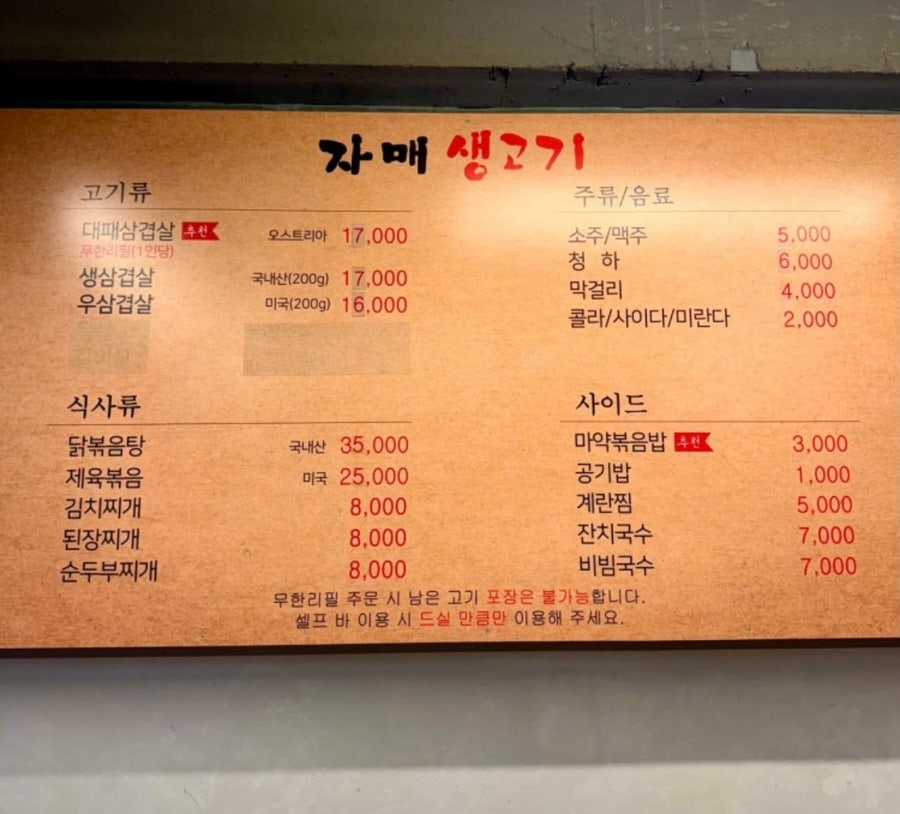 자매 생고기
고기류
대패삼겹살 추천 오스트리아 17,000
무한리필(1인당)
생삼겹살 국내산(200g) 17,000
우삼겹살 미국(200g) 16,000
식사류
닭볶음탕 국내산 35,000
제육볶음 미국 25,000
김치찌개 8,000
된장찌개 8,000
순두부찌개 8,000
주류/음료
소주/맥주 5,000
청 하 6,000
막걸리 4,000
콜라/사이다/미란다 2,000
사이드
마약볶음밥 추천 3,000
공기밥 1,000
계란찜 5,000
잔치국수 7,000
비빔국수 7,000
무한리필 주문 시 남은 고기 포장은 불가능합니다.
셀프 바 이용 시 드실 만큼만 이용해 주세요.